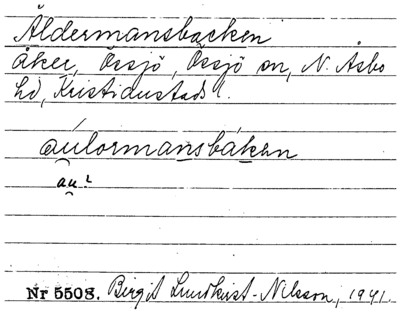 Åldermansbacken
åker, Össjö, Össjö sn, N. Åsbo
hd, Kristianstads l.
aúlormansbáken
au?
Nr 5508. Birgit Lundkvist-Nilsson, 1941.